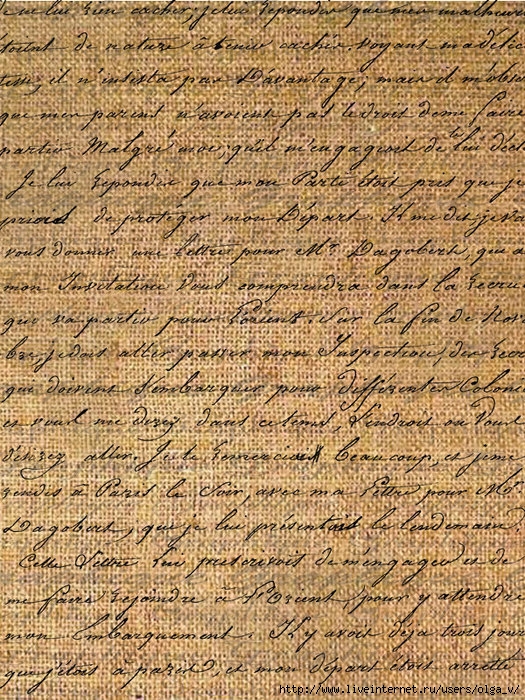 ne lui rien cacher, je lui repondis que mes malheurs
étoient de nature à tenir caché, voyant ma délica
tesse, il n'insista pas Davantage; mais il m'obser
que mes parens n'avoient pas le droit de me faire
partir Malgré moi, qu'il m'engageoit de lui décl
Je lui repondis que mon Parti étoit pris que je
priois de protéger mon Départ. Il me dit, je vai
vous donner une lettre pour Mr. Dagobert, qui a
mon Invitation vous comprendra dans la recrue
qui va partir pour Lorient. Sur la fin de Nov
bre, je dois aller passer mon Inspection, des recr
qui doivent s'embarquer pour différentes Coloni
et vous me direz dans ce tems, l'endroit ou vous
désirez aller. Je le remerciai beaucoup, et je me
rendis à Paris le Soir, avec ma Lettre pour Mr.
Dagobert, que je lui présentois le lendemain.
Cette Lettre lui prescrivoit de m'engager et de
me faire rejoindre à l'Orient, pour y attendre
mon Embarquement. Il y avoit déja trois jour
que j'étois à paris et mon départ étoit arretté
http://www.liveinternet.ru/users/olga_v/